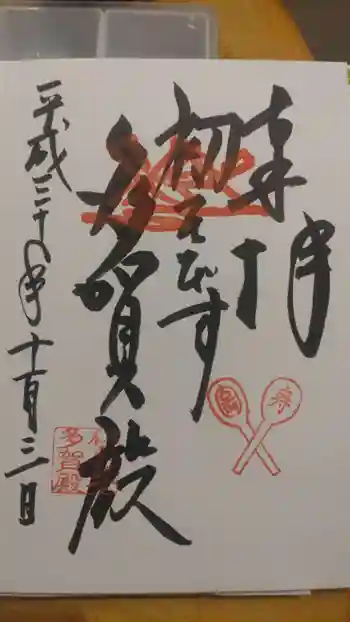 奉拝
初えびす
多賀殿
平成三十年十一月三日
寿
多賀殿